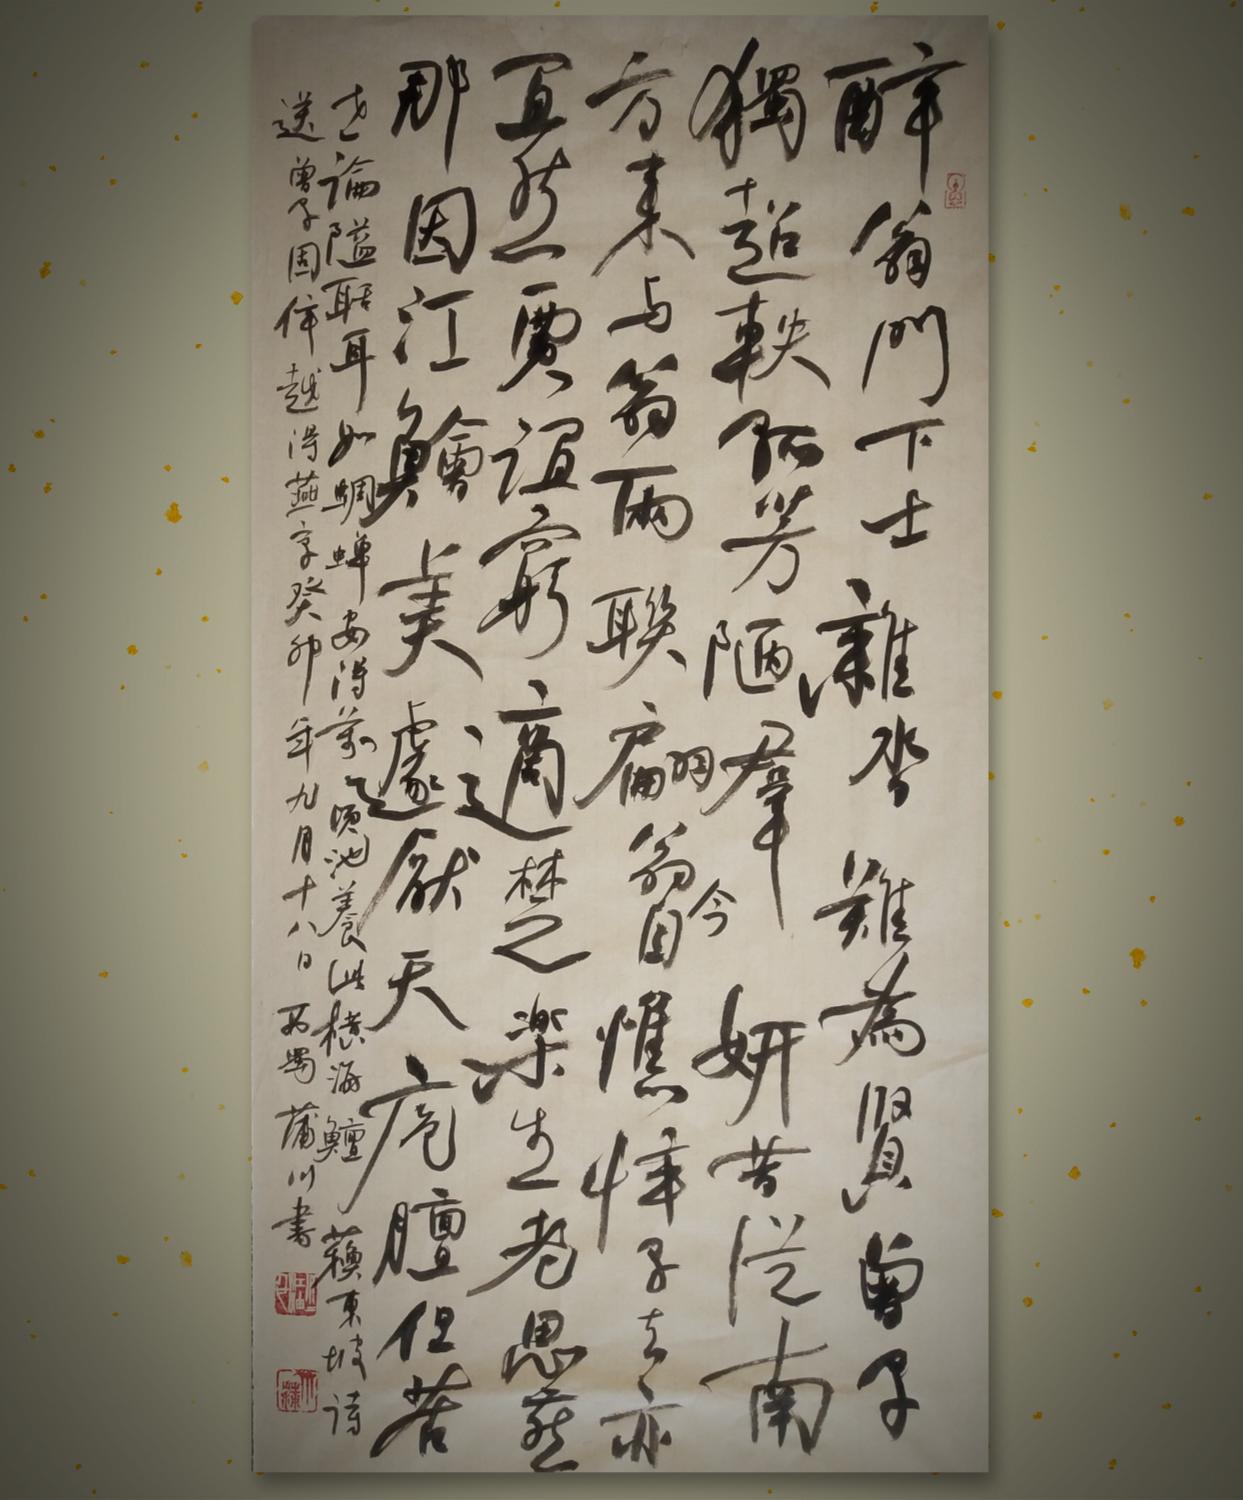 醉翁門下士雜沓難為賢曾子
獨超軼孤芳陋羣妍昔從南
方來与翁兩聯翩翁今自憔悴子去亦
宜然賈誼窮適楚楽生老思燕
那因江鱠美遽厭天庖膻但苦
世論隘聒耳如蜩蟬安得萬頃池養此橫海鱣 蘇東坡詩
送曾子固倅越得燕字癸卯年九月十八日西蜀蒲川書